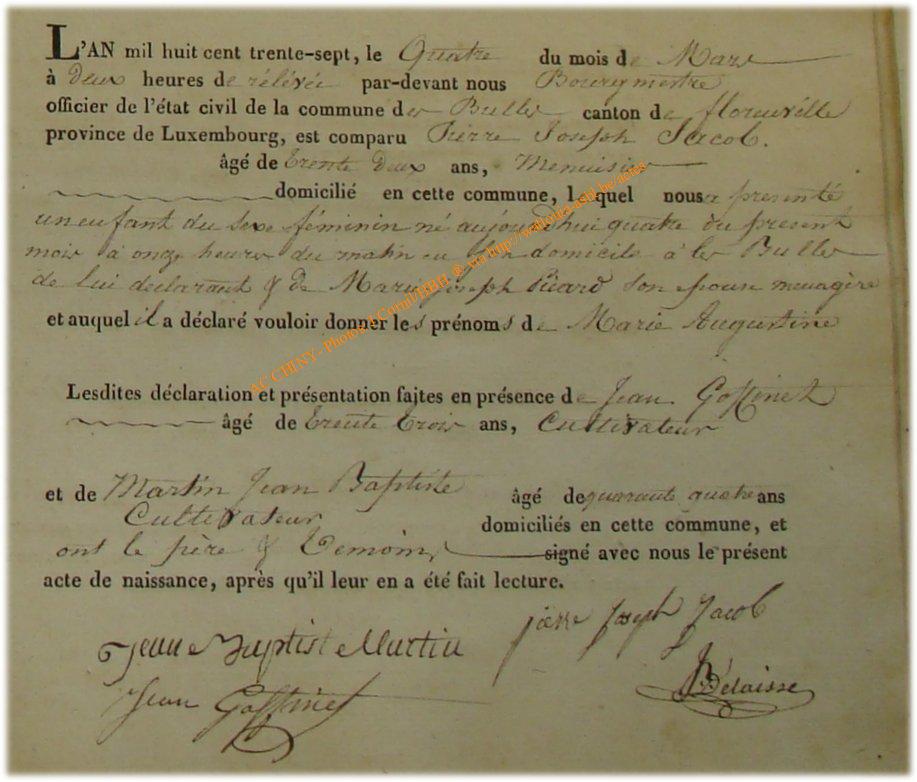 L'AN mil huit cent trente-sept, le Quatre du mois de Mars
à deux heures de rélévée par-devant nous Bourgmestre
officier de l'état civil de la commune des Bulles canton de florenville
province de Luxembourg, est comparu Pierre Joseph Jacob.
âgé de trente deux ans, Menuisier
domicilié en cette commune, lequel nous a presenté
un enfant du sexe féminin né aujourd'hui quatre du present
mois à onze heures du matin en son domicile à les Bulles
de lui declarant & de Marie joseph Picard son epouse menagère
et auquel il a déclaré vouloir donner les prénoms de Marie Augustine
Lesdites déclaration et présentation faites en présence de Jean Goffinet
âgé de trente trois ans, Cultivateur
et de Martin Jean Baptiste âgé de quarante quatre ans
Cultivateur domiciliés en cette commune, et
ont le père & temoins signé avec nous le présent
acte de naissance, après qu'il leur en a été fait lecture.
pierre Joseph Jacob
Jean Baptiste Martin
Delaisse
Jean Goffinet
AC CHINY - Photos J Cornil/BBH @ via http://wallonia.